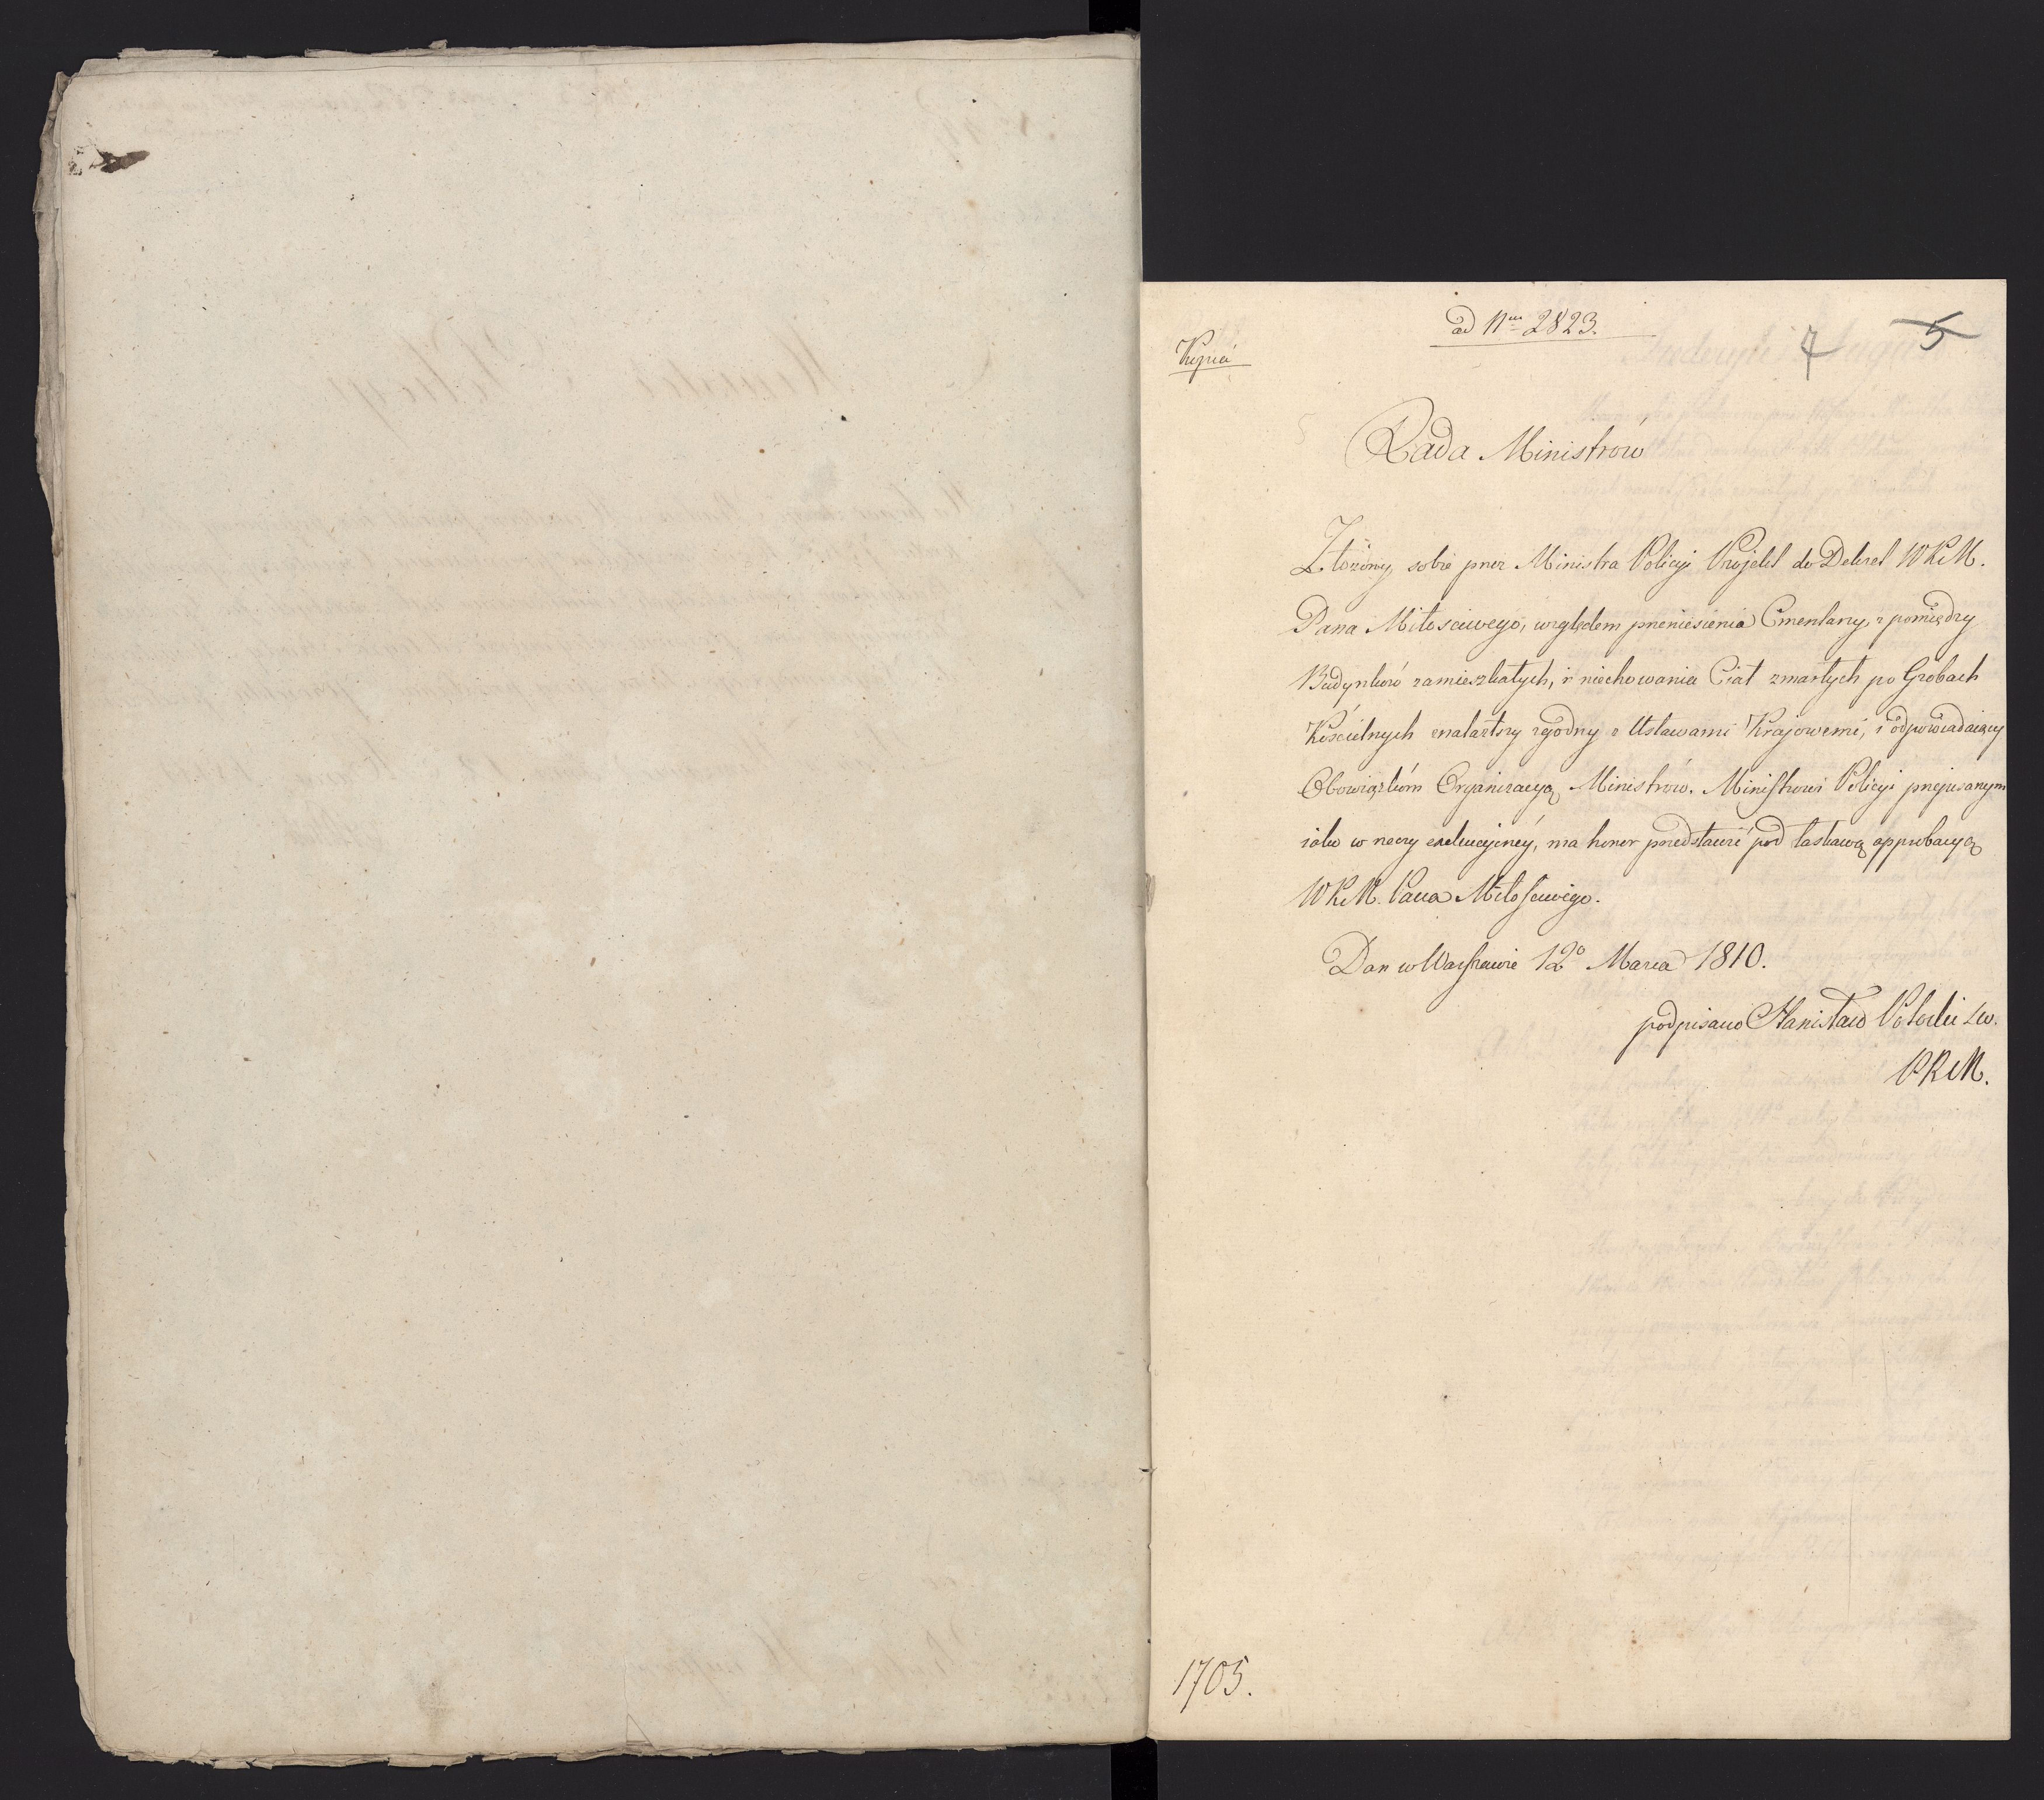 ad Nm 2823.
5
7
Kopia
Rada Ministrow
Złożony sobie przez Ministra Policyi Projekt do Dekret WKM.
Pana Miłosciwego, względem przeniesienia Cmentarzy, z pomiędzy
Budynków zamieszkałych, i niechowania Ciał zmarłych po Grobach
Kościelnych znalazłszy zgodny z Ustawami Krajowemi, i odpowiadaiący
Obowiązkom Organizacyą Ministrów. Ministrowi Policyi przepisanym
iako w rzeczy exekucyjnéy, ma honor przedstawić pod łaskawą approbacyą
WKM. Pana Miłosciwego.
Dan w Warszawie 12º Marca 1810.
podpisano Stanisław Potocki Zw.
PRM.
1705.